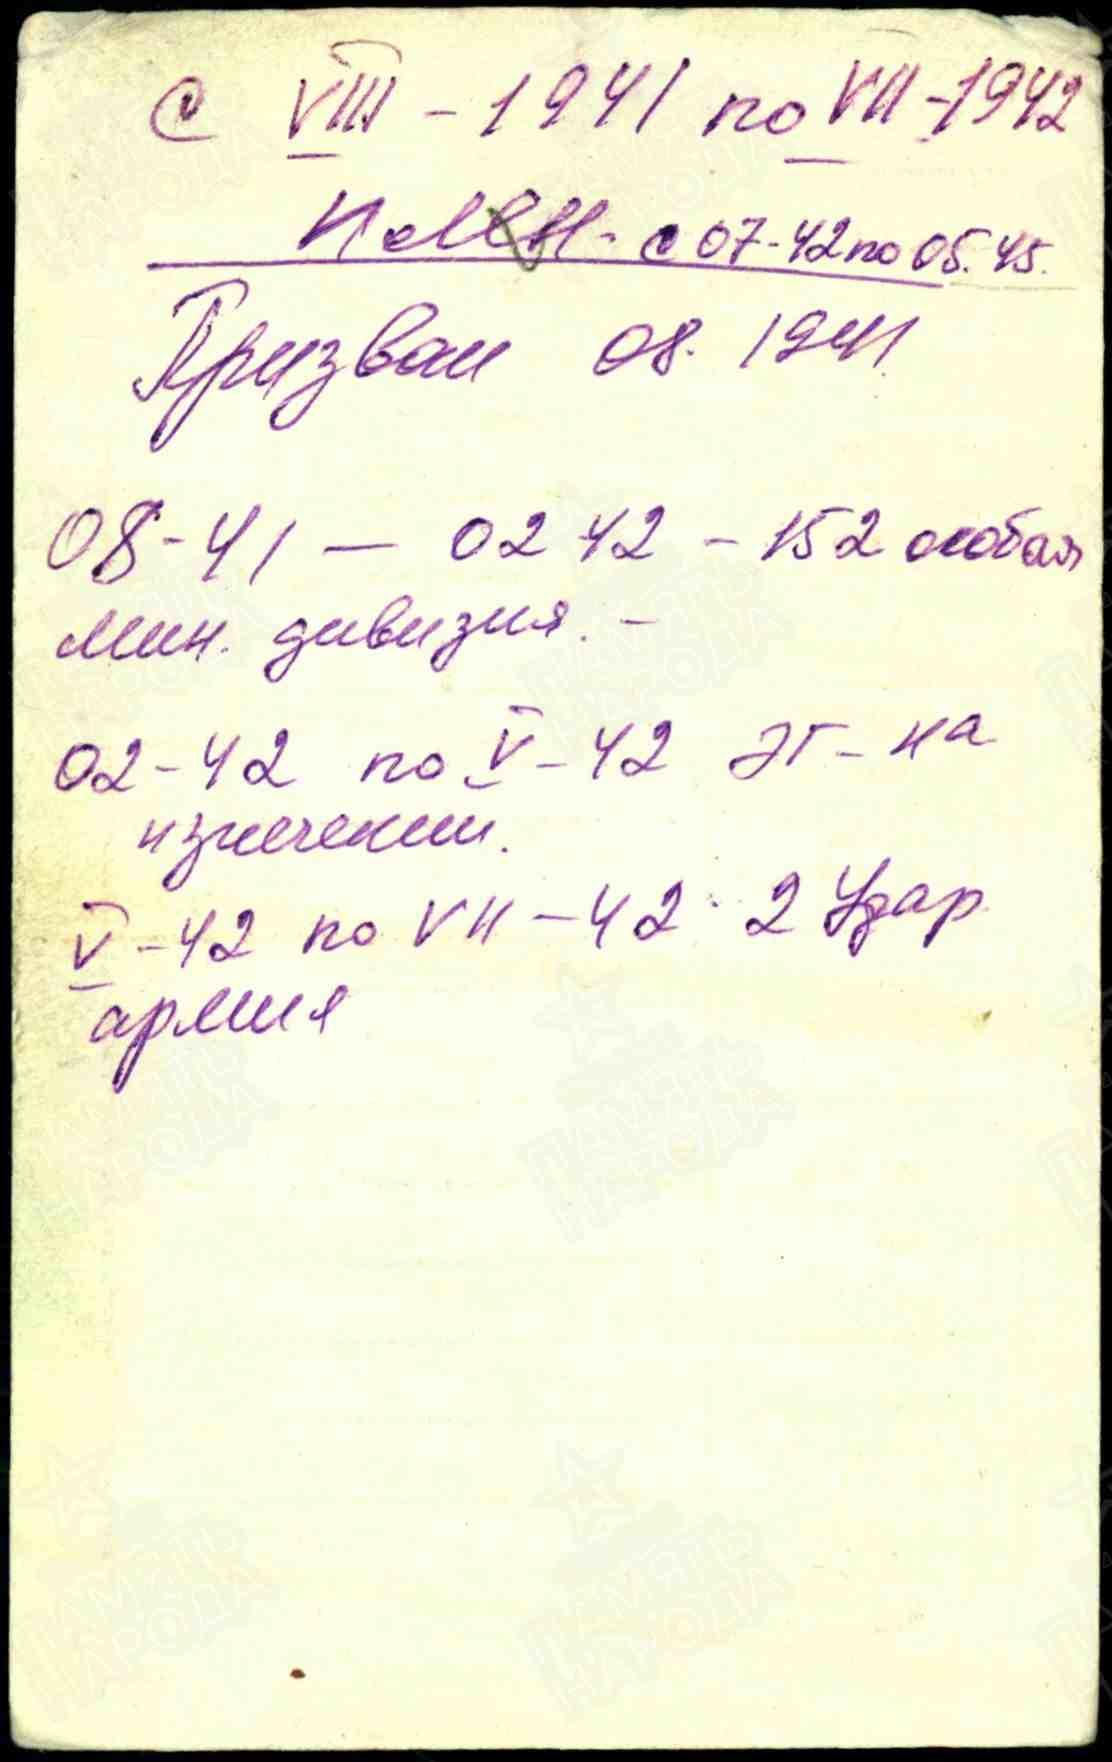 С VIII - 1941 по VII - 1942
Плен - с 07-42 по 05.45.
Призван 08. 1941.
08-41 — 02 42 - 152 особая
мин. дивизия. -
02-42 по V - 42 ЭГ - на
излечении.
V - 42 по VII - 42 2 Удар
армия
ПАМЯТЬ НАРОДА